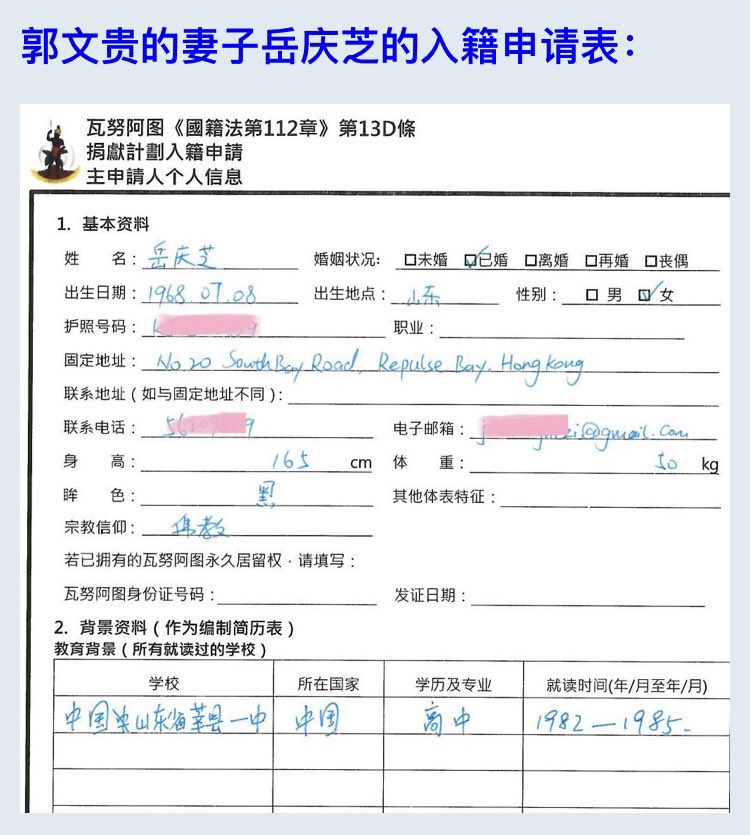 郭文贵的妻子岳庆芝的入籍申请表：
瓦努阿图《國籍法第112章》第13D條
捐獻計劃入籍申請
主申請人个人信息
1. 基本资料
姓 名：岳庆芝 婚姻状况：□未婚 ☑已婚 □离婚 □再婚 □丧偶
出生日期：1968.07.08 出生地点：山东 性别：□ 男 ☑ 女
护照号码：K 9 职业：
固定地址：No.20 South Bay Road, Repulse Bay. Hong Kong
联系地址（如与固定地址不同）：
联系电话： 电子邮箱： @gmail.com
身 高：165 cm 体 重：50 kg
眸 色：黑 其他体表特征：
宗教信仰：佛教
若已拥有的瓦努阿图永久居留权，请填写：
瓦努阿图身份证号码： 发证日期：
2. 背景资料（作为编制简历表）
教育背景（所有就读过的学校）
学校 所在国家 学历及专业 就读时间(年/月至年/月)
中国 山东省莘县一中 中国 高中 1982—1985.